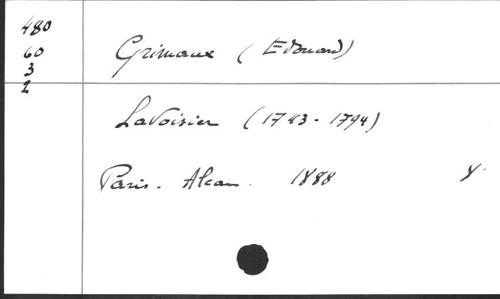 480
60
3
2
Grimaux (Edouard)
Lavoisier (1743-1794)
Paris. Alcan. 1888